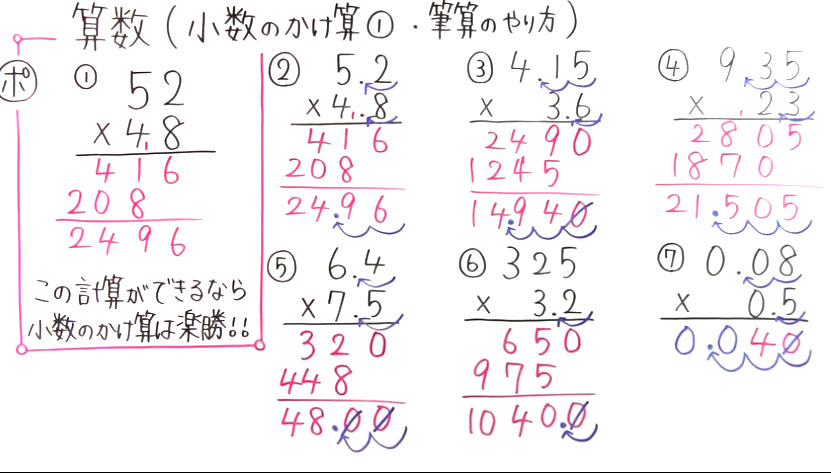 算数(小数のかけ算①・筆算のやり方)
ポ
① 52
×4.8
416
208
2496
この計算ができるなら
小数のかけ算は楽勝!!
② 5.2
×4.8
416
208
24.96
③ 4.15
× 3.6
2490
1245
14.940
④ 9.35
× .23
2805
1870
21.505
⑤ 6.4
×7.5
320
448
48.00
⑥ 325
× 3.2
650
975
1040.0
⑦ 0.08
× 0.5
0.040